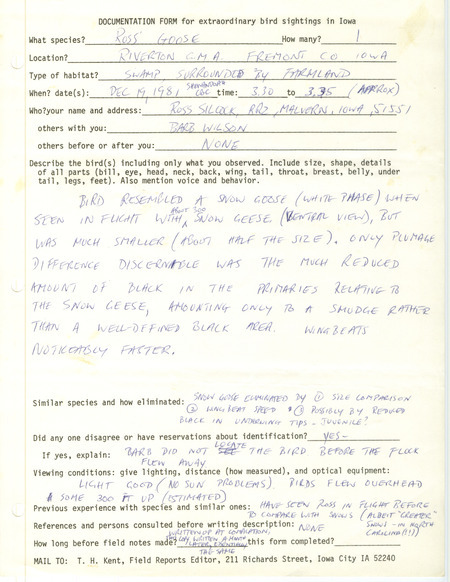 DOCUMENTATION FORM for extraordinary bird sightings in Iowa
What species? ROSS' GOOSE How many? 1
Location? RIVERTON G.M.A. FREMONT CO IOWA
Type of habitat? SWAMP SURROUNDED BY FARMLAND
When? date(s): DEC 19, 1981 SHENANDOAH CBC time: 3.30 to 3.35 (APPROX)
Who? your name and address: ROSS SILCOCK, RR2, MALVERN, IOWA, 51551
others with you: BARB WILSON
others before or after you: NONE
Describe the bird(s) including only what you observed. Include size, shape, details
of all parts (bill, eye, head, neck, back, wing, tail, throat, breast, belly, under
tail, legs, feet). Also mention voice and behavior.
BIRD RESEMBLED A SNOW GOOSE (WHITE PHASE) WHEN
SEEN IN FLIGHT WITH ABOUT 300 SNOW GEESE (VENTRAL VIEW), BUT
WAS MUCH SMALLER (ABOUT HALF THE SIZE). ONLY PLUMAGE
DIFFERENCE DISCERNABLE WAS THE MUCH REDUCED
AMOUNT OF BLACK IN THE PRIMARIES RELATIVE TO
THE SNOW GEESE, AMOUNTING ONLY TO A SMUDGE RATHER
THAN A WELL-DEFINED BLACK AREA. WINGBEATS
NOTICEABLY FASTER.
Similar species and how eliminated: SNOW GOOSE ELIMINATED BY ① SIZE COMPARISON
② WINGBEAT SPEED & ③ POSSIBLY BY REDUCED
BLACK IN UNDERWING TIPS - JUVENILE?
Did any one disagree or have reservations about identification? YES -
If yes, explain: BARB DID NOT LOCATE THE BIRD BEFORE THE FLOCK
FLEW AWAY
Viewing conditions: give lighting, distance (how measured), and optical equipment:
LIGHT GOOD (NO SUN PROBLEMS) BIRDS FLEW OVERHEAD
& SOME 300 FT UP (ESTIMATED)
Previous experience with species and similar ones: HAVE SEEN ROSS IN FLIGHT BEFORE
TO COMPARE WITH SNOWS (ALBEIT "GREATER"
SNOWS - IN NORTH
CAROLINA!!!)
References and persons consulted before writing description: NONE
How long before field notes made? WRITTEN UP AT COMPILATION, this form completed?
WRITTEN A MONTH
LATER, ESSENTIALLY
THE SAME
MAIL TO: T. H. Kent, Field Reports Editor, 211 Richards Street, Iowa City IA 52240